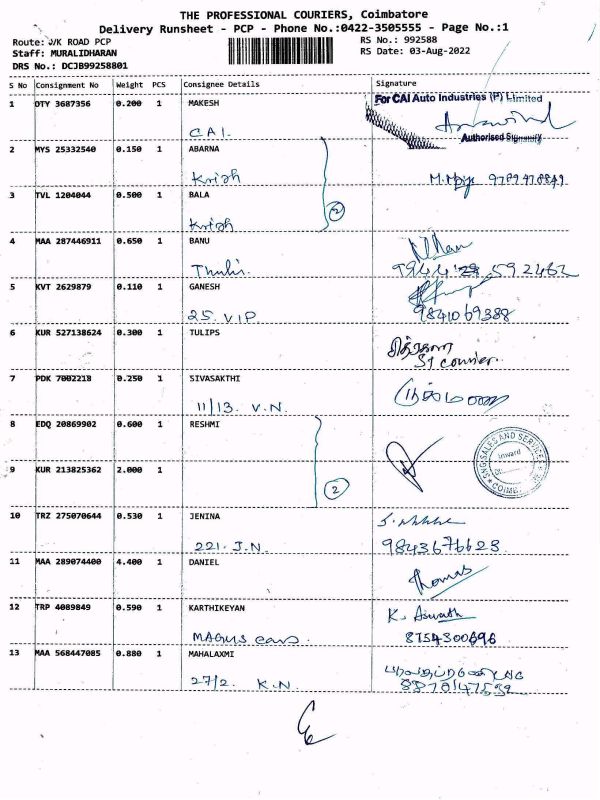 THE PROFESSIONAL COURIERS, Coimbatore
Delivery Runsheet - PCP - Phone No.:0422-3505555 - Page No.:1
Route: J/K ROAD PCP
RS No.: 992588
Staff: MURALIDHARAN
RS Date: 03-Aug-2022
DRS No.: DCJB99258801
S No Consignment No Weight PCS Consignee Details Signature
1 DTY 3687356 0.200 1 MAKESH
For CAI Auto Industries (P) Limited
CAI.
Authorised Signatory
2 MYS 25332540 0.150 1 ABARNA
Krish
9789478849
3 TVL 1204044 0.500 1 BALA
2
Krish
4 MAA 287446911 0.650 1 BANU
592462
5 KVT 2629879 0.110 1 GANESH
25. VIP
9841069388
6 KUR 527138624 0.300 1 TULIPS
ST courier.
7 PDK 7002218 0.250 1 SIVASAKTHI
11/13. V.N.
8 EDQ 20869902 0.600 1 RESHMI
SALES AND SERVICE
Inward
9 KUR 213825362 2.000 1
2
10 TRZ 275070644 0.530 1 JENINA
221. J.N.
9843676623
11 MAA 289074400 4.400 1 DANIEL
Thomas
12 TRP 4089849 0.590 1 KARTHIKEYAN
K. Aswath
MAGNUS cars.
8754300696
13 MAA 568447085 0.880 1 MAHALAXMI
27/2. K.N.